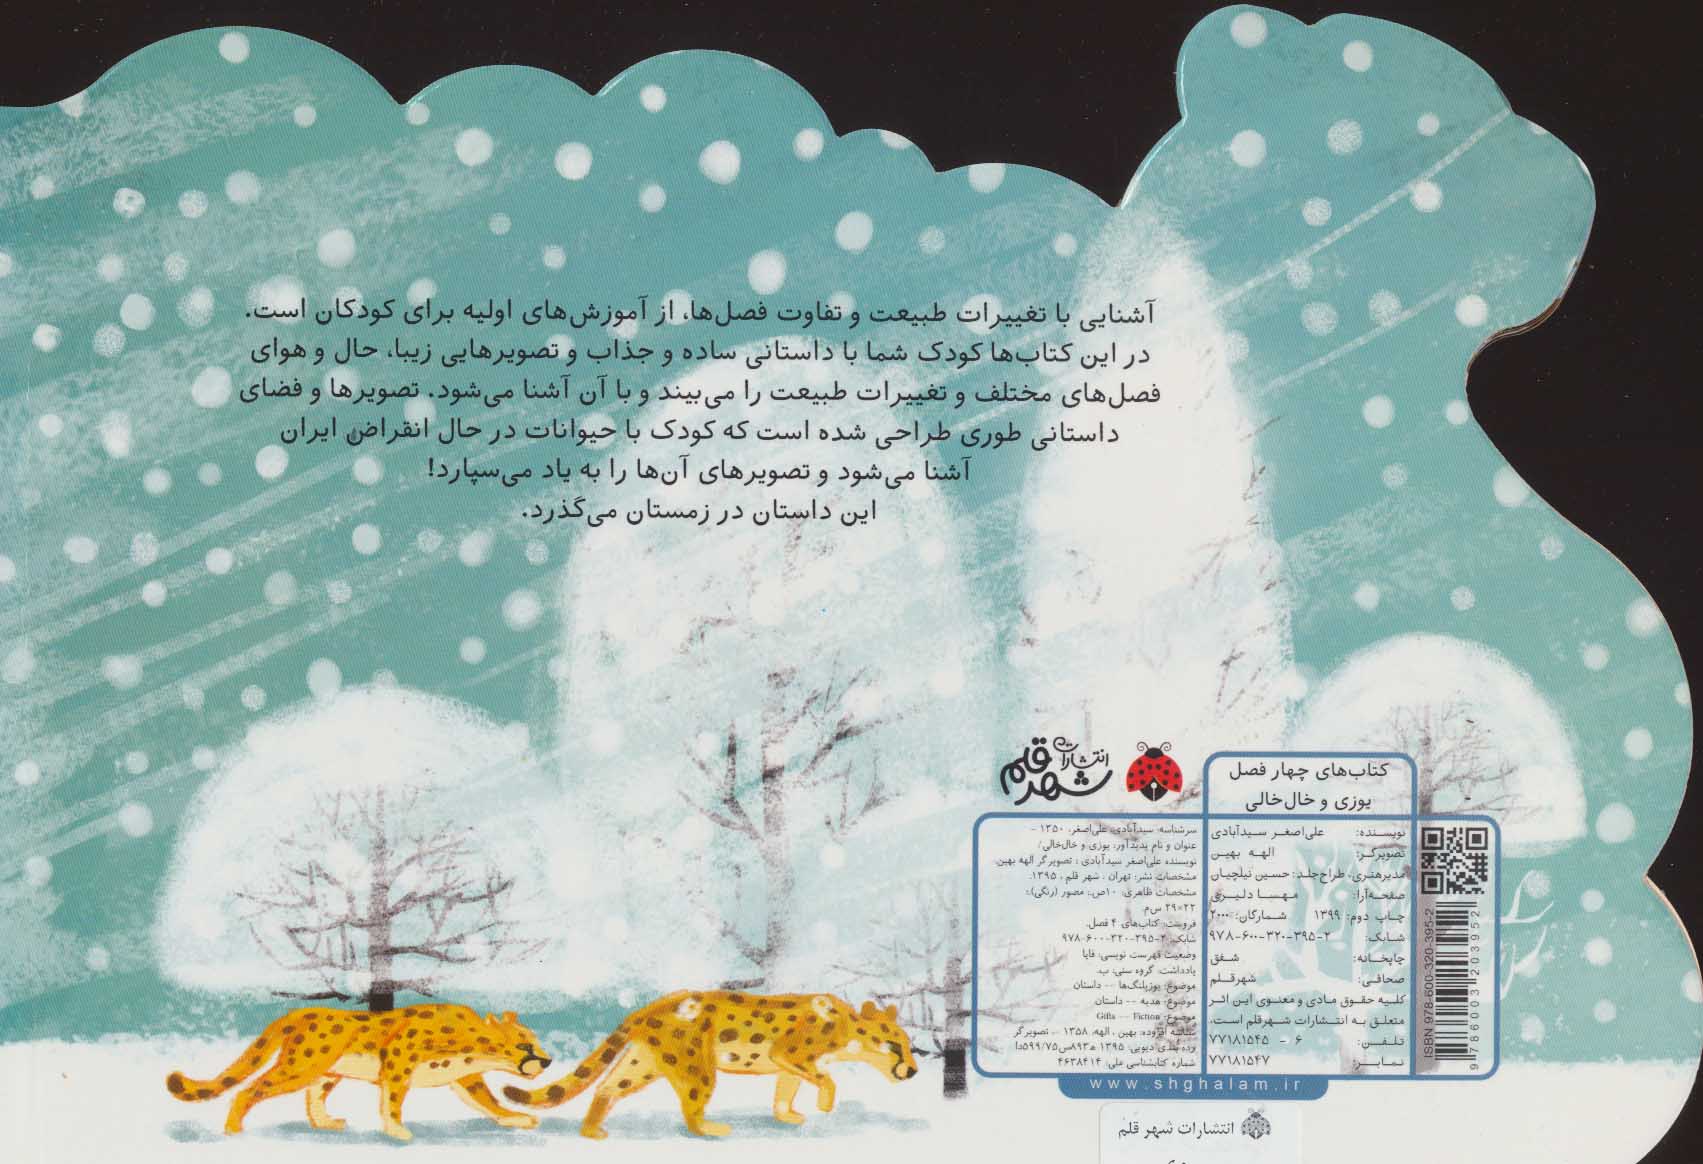 آشنایی با تغییرات طبیعت و تفاوت فصل‌ها، از آموزش‌های اولیه برای کودکان است.
در این کتاب‌ها کودک شما با داستانی ساده و جذاب و تصویرهایی زیبا، حال و هوای
فصل‌های مختلف و تغییرات طبیعت را می‌بیند و با آن آشنا می‌شود. تصویرها و فضای
داستانی طوری طراحی شده است که کودک با حیوانات در حال انقراض ایران
آشنا می‌شود و تصویرهای آن‌ها را به یاد می‌سپارد!
این داستان در زمستان می‌گذرد.
انتشارات
شهر قلم
کتاب‌های چهار فصل
یوزی و خال‌خالی
نویسنده: علی‌اصغر سیدآبادی
تصویرگر: الهه بهین
مدیرهنری، طراح‌جلد: حسین نیلچیان
صفحه‌آرا: مهسا دلیری
چاپ دوم: ۱۳۹۹ شمارگان: ۲۰۰۰
شابک: ۲-۳۹۵-۳۲۰-۶۰۰-۹۷۸
چاپخانه: شفق
صحافی: شهرقلم
کلیه حقوق مادی و معنوی این اثر
متعلق به انتشارات شهرقلم است.
تلفن: ۶ - ۷۷۱۸۱۵۴۵
نمابر: ۷۷۱۸۱۵۴۷
سرشناسه: سیدآبادی، علی‌اصغر، ۱۳۵۰ -
عنوان و نام پدیدآور: یوزی و خال‌خالی/
نویسنده علی‌اصغر سیدآبادی ؛ تصویرگر الهه بهین.
مشخصات نشر: تهران ، شهر قلم ، ۱۳۹۵.
مشخصات ظاهری: ۱۰ص.: مصور (رنگی).؛
۲۲×۲۹ س‌م.
فروست: کتاب‌های ۴ فصل.
شابک: ۲-۳۹۵-۳۲۰-۶۰۰-۹۷۸
وضعیت فهرست نویسی: فاپا
یادداشت: گروه سنی: ب.
موضوع: یوزپلنگ‌ها -- داستان
موضوع: هدیه -- داستان
موضوع: Gifts -- Fiction
شناسه افزوده: بهین ، الهه، ۱۳۵۸ -، تصویرگر
شماره کتابشناسی ملی: ۴۶۳۸۴۱۴
ISBN 978-600-320-395-2
9 786003 203952
www.shghalam.ir
انتشارات شهر قلم